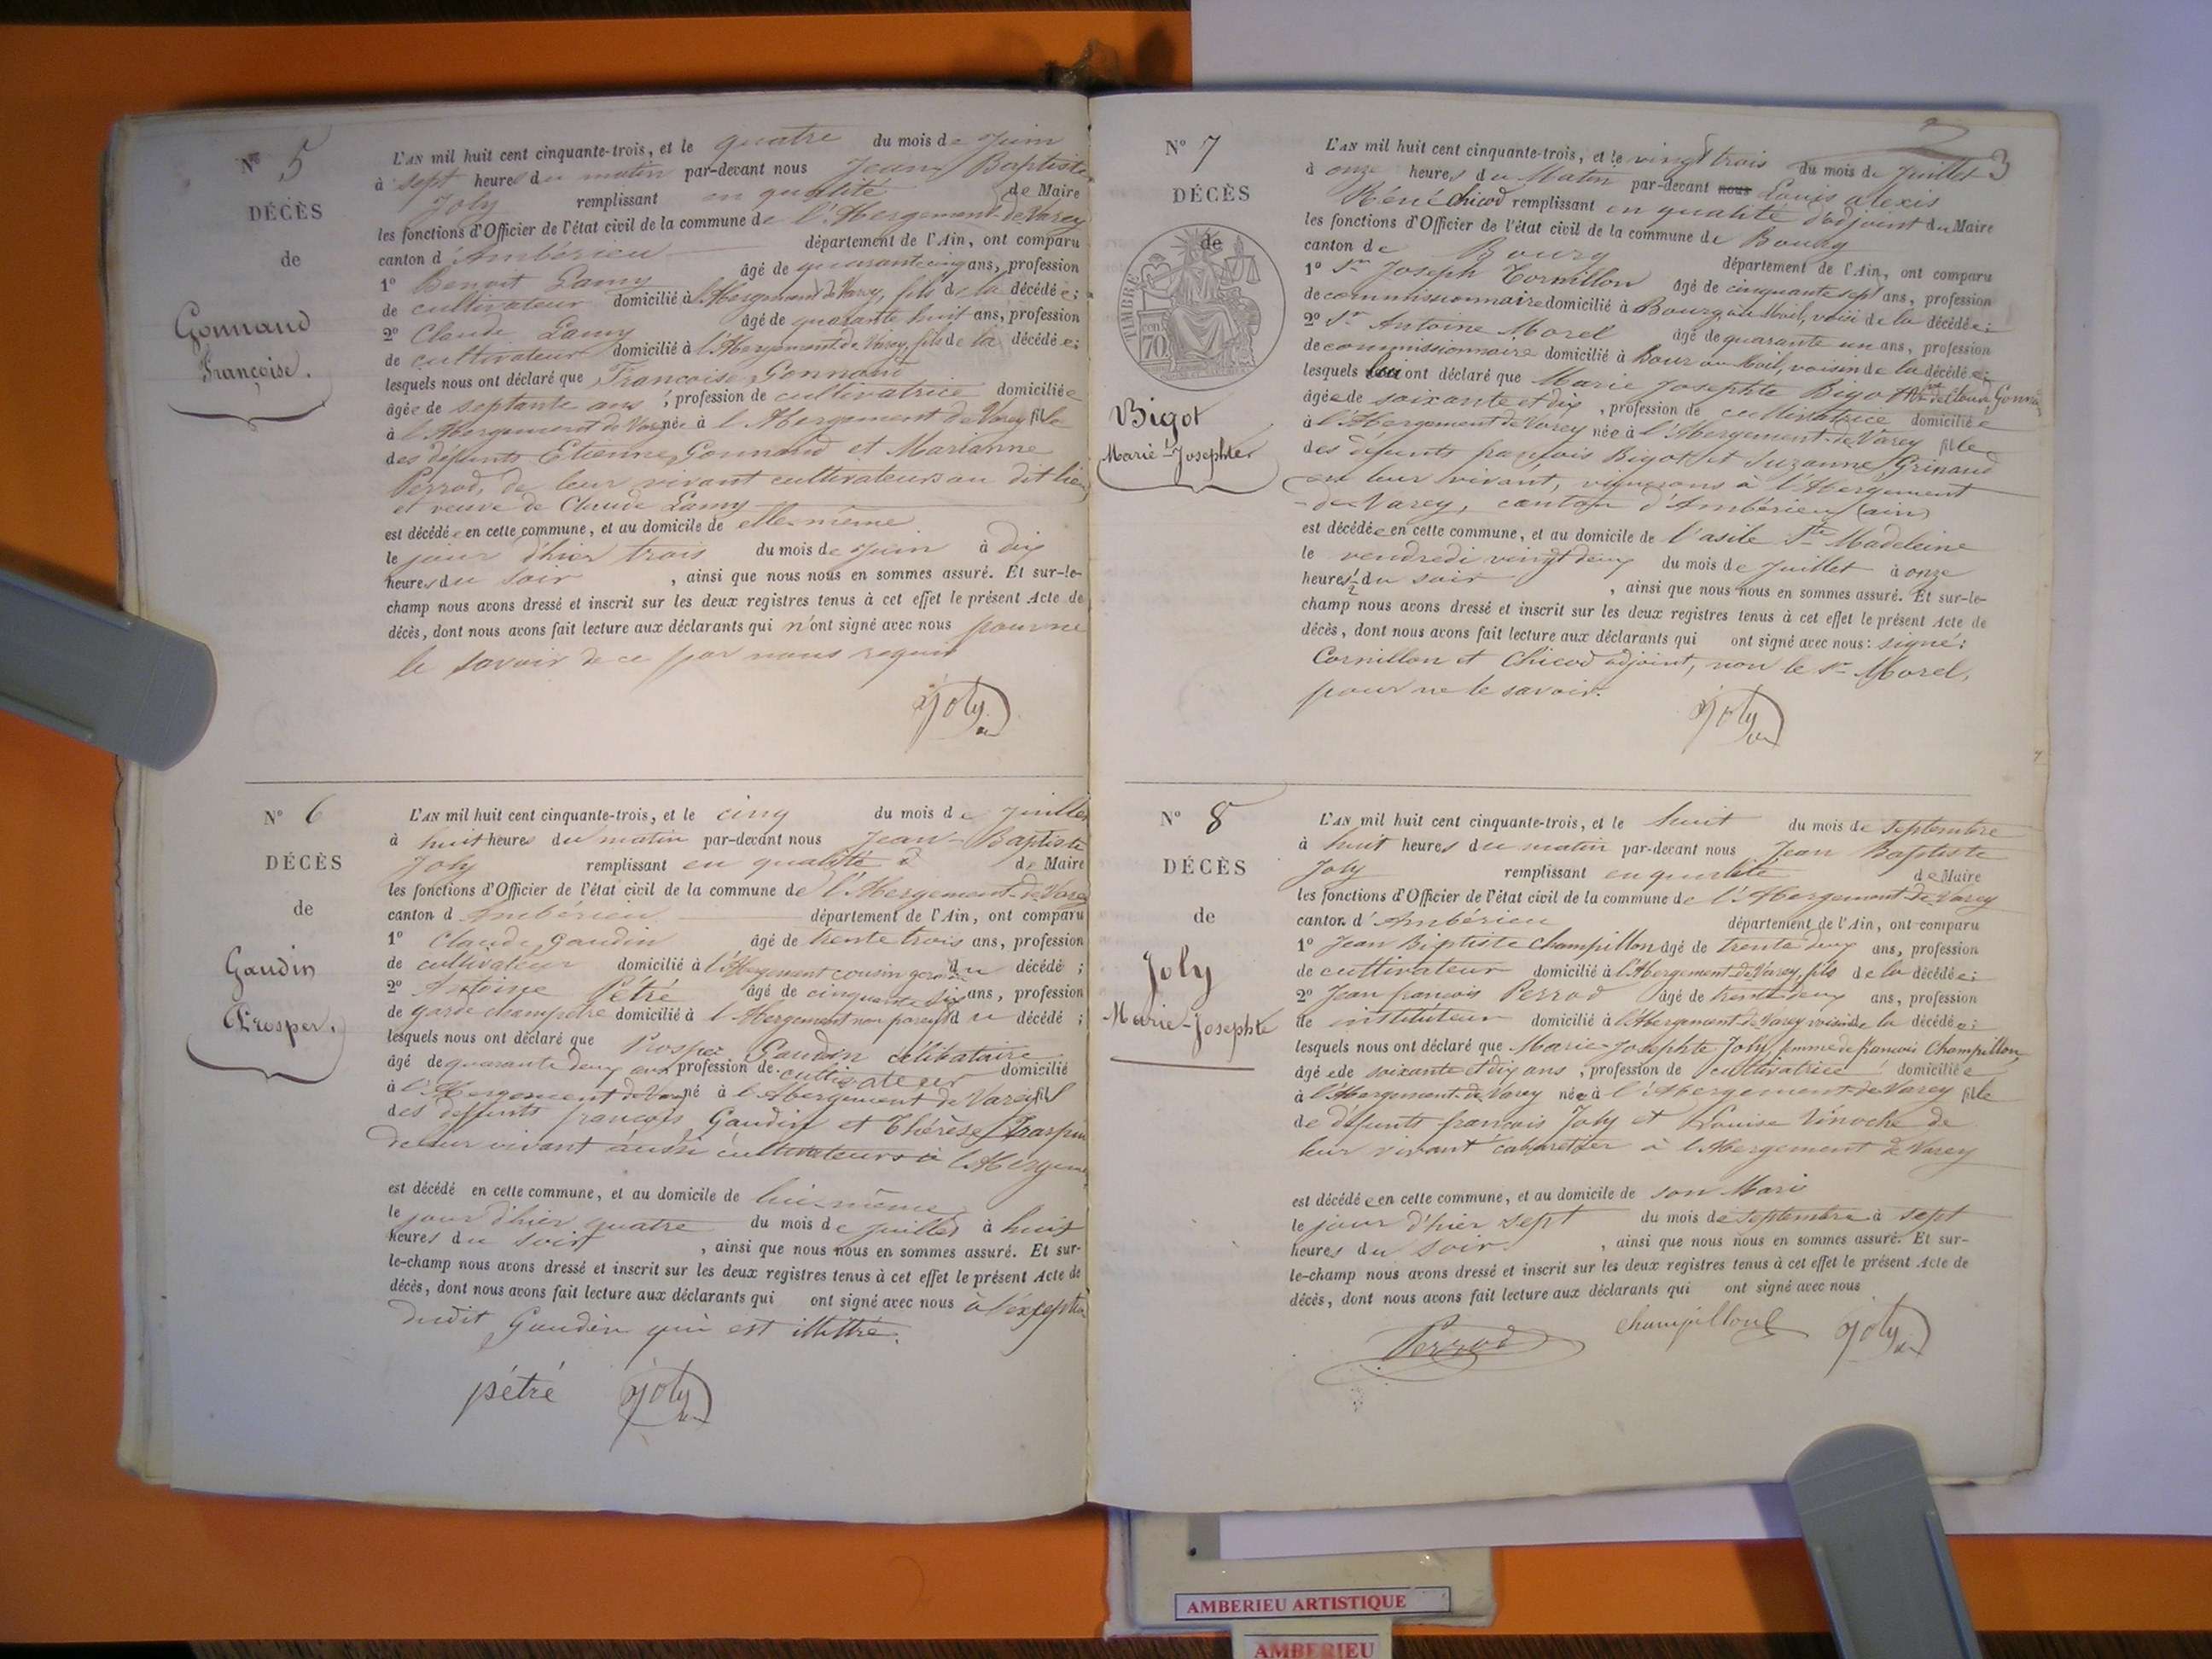 N° 5
DÉCÈS
de
Gonnand
Françoise.
L'AN mil huit cent cinquante-trois, et le quatre du mois de Juin
à sept heures du matin par-devant nous Jean Baptiste
Joly remplissant en qualité de Maire
les fonctions d'Officier de l'état civil de la commune de l'Abergement-de-Varey
canton d'Ambérieu département de l'Ain, ont comparu
1° Benoit Lamy âgé de quarante cinq ans, profession
de cultivateur domicilié à l'Abergement de Varey, fils de la décédée;
2° Claude Lamy âgé de quarante huit ans, profession
de cultivateur domicilié à l'Abergement de Varey, fils de la décédée;
lesquels nous ont déclaré que Françoise Gonnand
âgée de septante ans, profession de cultivatrice domiciliée
à l'Abergement de Varey née à l'Abergement de Varey fille
des défunts Etienne Gonnand et Marianne
Perrod, de leur vivant cultivateurs au dit lieu
et veuve de Claude Lamy
est décédée en cette commune, et au domicile de elle-même
le jour d'hier trois du mois de Juin à dix
heures du soir, ainsi que nous nous en sommes assuré. Et sur-le-
champ nous avons dressé et inscrit sur les deux registres tenus à cet effet le présent Acte de
décès, dont nous avons fait lecture aux déclarants qui n'ont signé avec nous pour ne
le savoir de ce par nous requis
Joly
N° 6
DÉCÈS
de
Gaudin
Prosper.
L'AN mil huit cent cinquante-trois, et le cinq du mois de Juillet
à huit heures du matin par-devant nous Jean-Baptiste
Joly remplissant en qualité de Maire
les fonctions d'Officier de l'état civil de la commune de l'Abergement-de-Varey
canton d'Ambérieu département de l'Ain, ont comparu
1° Claude Gaudin âgé de trente trois ans, profession
de cultivateur domicilié à l'Abergement cousin germain du décédé;
2° Antoine Pétré âgé de cinquante six ans, profession
de garde champêtre domicilié à l'Abergement non parent du décédé;
lesquels nous ont déclaré que Prosper Gaudin célibataire
âgé de quarante deux ans, profession de cultivateur domicilié
à l'Abergement de Varey né à l'Abergement de Varey fil
des deffunts françois Gaudin et Thérèse
de leur vivant aussi cultivateurs à l'Abergement
est décédé en cette commune, et au domicile de lui-même
le jour d'hier quatre du mois de Juillet à huit
heures du soir, ainsi que nous nous en sommes assuré. Et sur-
le-champ nous avons dressé et inscrit sur les deux registres tenus à cet effet le présent Acte de
décès, dont nous avons fait lecture aux déclarants qui ont signé avec nous à l'exception
dudit Gaudin qui est illettré.
pétré Joly
3
N° 7
DÉCÈS
de
TIMBRE
70
Bigot
Marie-Josephte
L'AN mil huit cent cinquante-trois, et le vingt trois du mois de Juillet
à onze heures du Matin par-devant nous Louis alexis
Réné Chicod remplissant en qualité d'adjoint du Maire
les fonctions d'Officier de l'état civil de la commune de Bourg
canton de Bourg département de l'Ain, ont comparu
1° Sr Joseph Cornillon âgé de cinquante sept ans, profession
de commissionnaire domicilié à Bourg, au Mail, voisin de la décédée;
2° Sr Antoine Morel âgé de quarante un ans, profession
de commissionnaire domicilié à Bourg au Mail, voisin de la décédée;
lesquels lui ont déclaré que Marie Josephte Bigot
âgée de soixante et dix, profession de cultivatrice domiciliée
à l'Abergement de Varey née à l'Abergement-de-Varey fille
des défunts françois Bigot et Suzanne Grinand
en leur vivant, vignerons à l'Abergement
de Varey, canton d'Ambérieu (ain)
est décédée en cette commune, et au domicile de l'asile Ste Madeleine
le vendredi vingt deux du mois de Juillet à onze
heures 1/2 du soir, ainsi que nous nous en sommes assuré. Et sur-le-
champ nous avons dressé et inscrit sur les deux registres tenus à cet effet le présent Acte de
décès, dont nous avons fait lecture aux déclarants qui ont signé avec nous: signé:
Cornillon et Chicod adjoint, non le Sr Morel,
pour ne le savoir.
Joly
N° 8
DÉCÈS
de
Joly
Marie-Josephte
L'AN mil huit cent cinquante-trois, et le huit du mois de Septembre
à huit heures du matin par-devant nous Jean Baptiste
Joly remplissant en qualité de Maire
les fonctions d'Officier de l'état civil de la commune de l'Abergement-de-Varey
canton d'Ambérieu département de l'Ain, ont comparu
1° Jean Baptiste Champillon âgé de trente deux ans, profession
de cultivateur domicilié à l'Abergement-de-Varey, fils de la décédée;
2° Jean françois Perrod âgé de trente deux ans, profession
de instituteur domicilié à l'Abergement-de-Varey voisin de la décédée;
lesquels nous ont déclaré que Marie-Josephte Joly femme de françois Champillon
âgée de soixante et dix ans, profession de cultivatrice domiciliée
à l'Abergement-de-Varey née à l'Abergement-de-Varey fille
de défunts françois Joly et Louise Vinoche de
leur vivant cabaretier à l'Abergement de Varey
est décédée en cette commune, et au domicile de son Mari
le jour d'hier sept du mois de septembre à sept
heures du soir, ainsi que nous nous en sommes assuré. Et sur-
le-champ nous avons dressé et inscrit sur les deux registres tenus à cet effet le présent Acte de
décès, dont nous avons fait lecture aux déclarants qui ont signé avec nous
Perrod Champillon Joly
AMBERIEU ARTISTIQUE
AMBERIEU